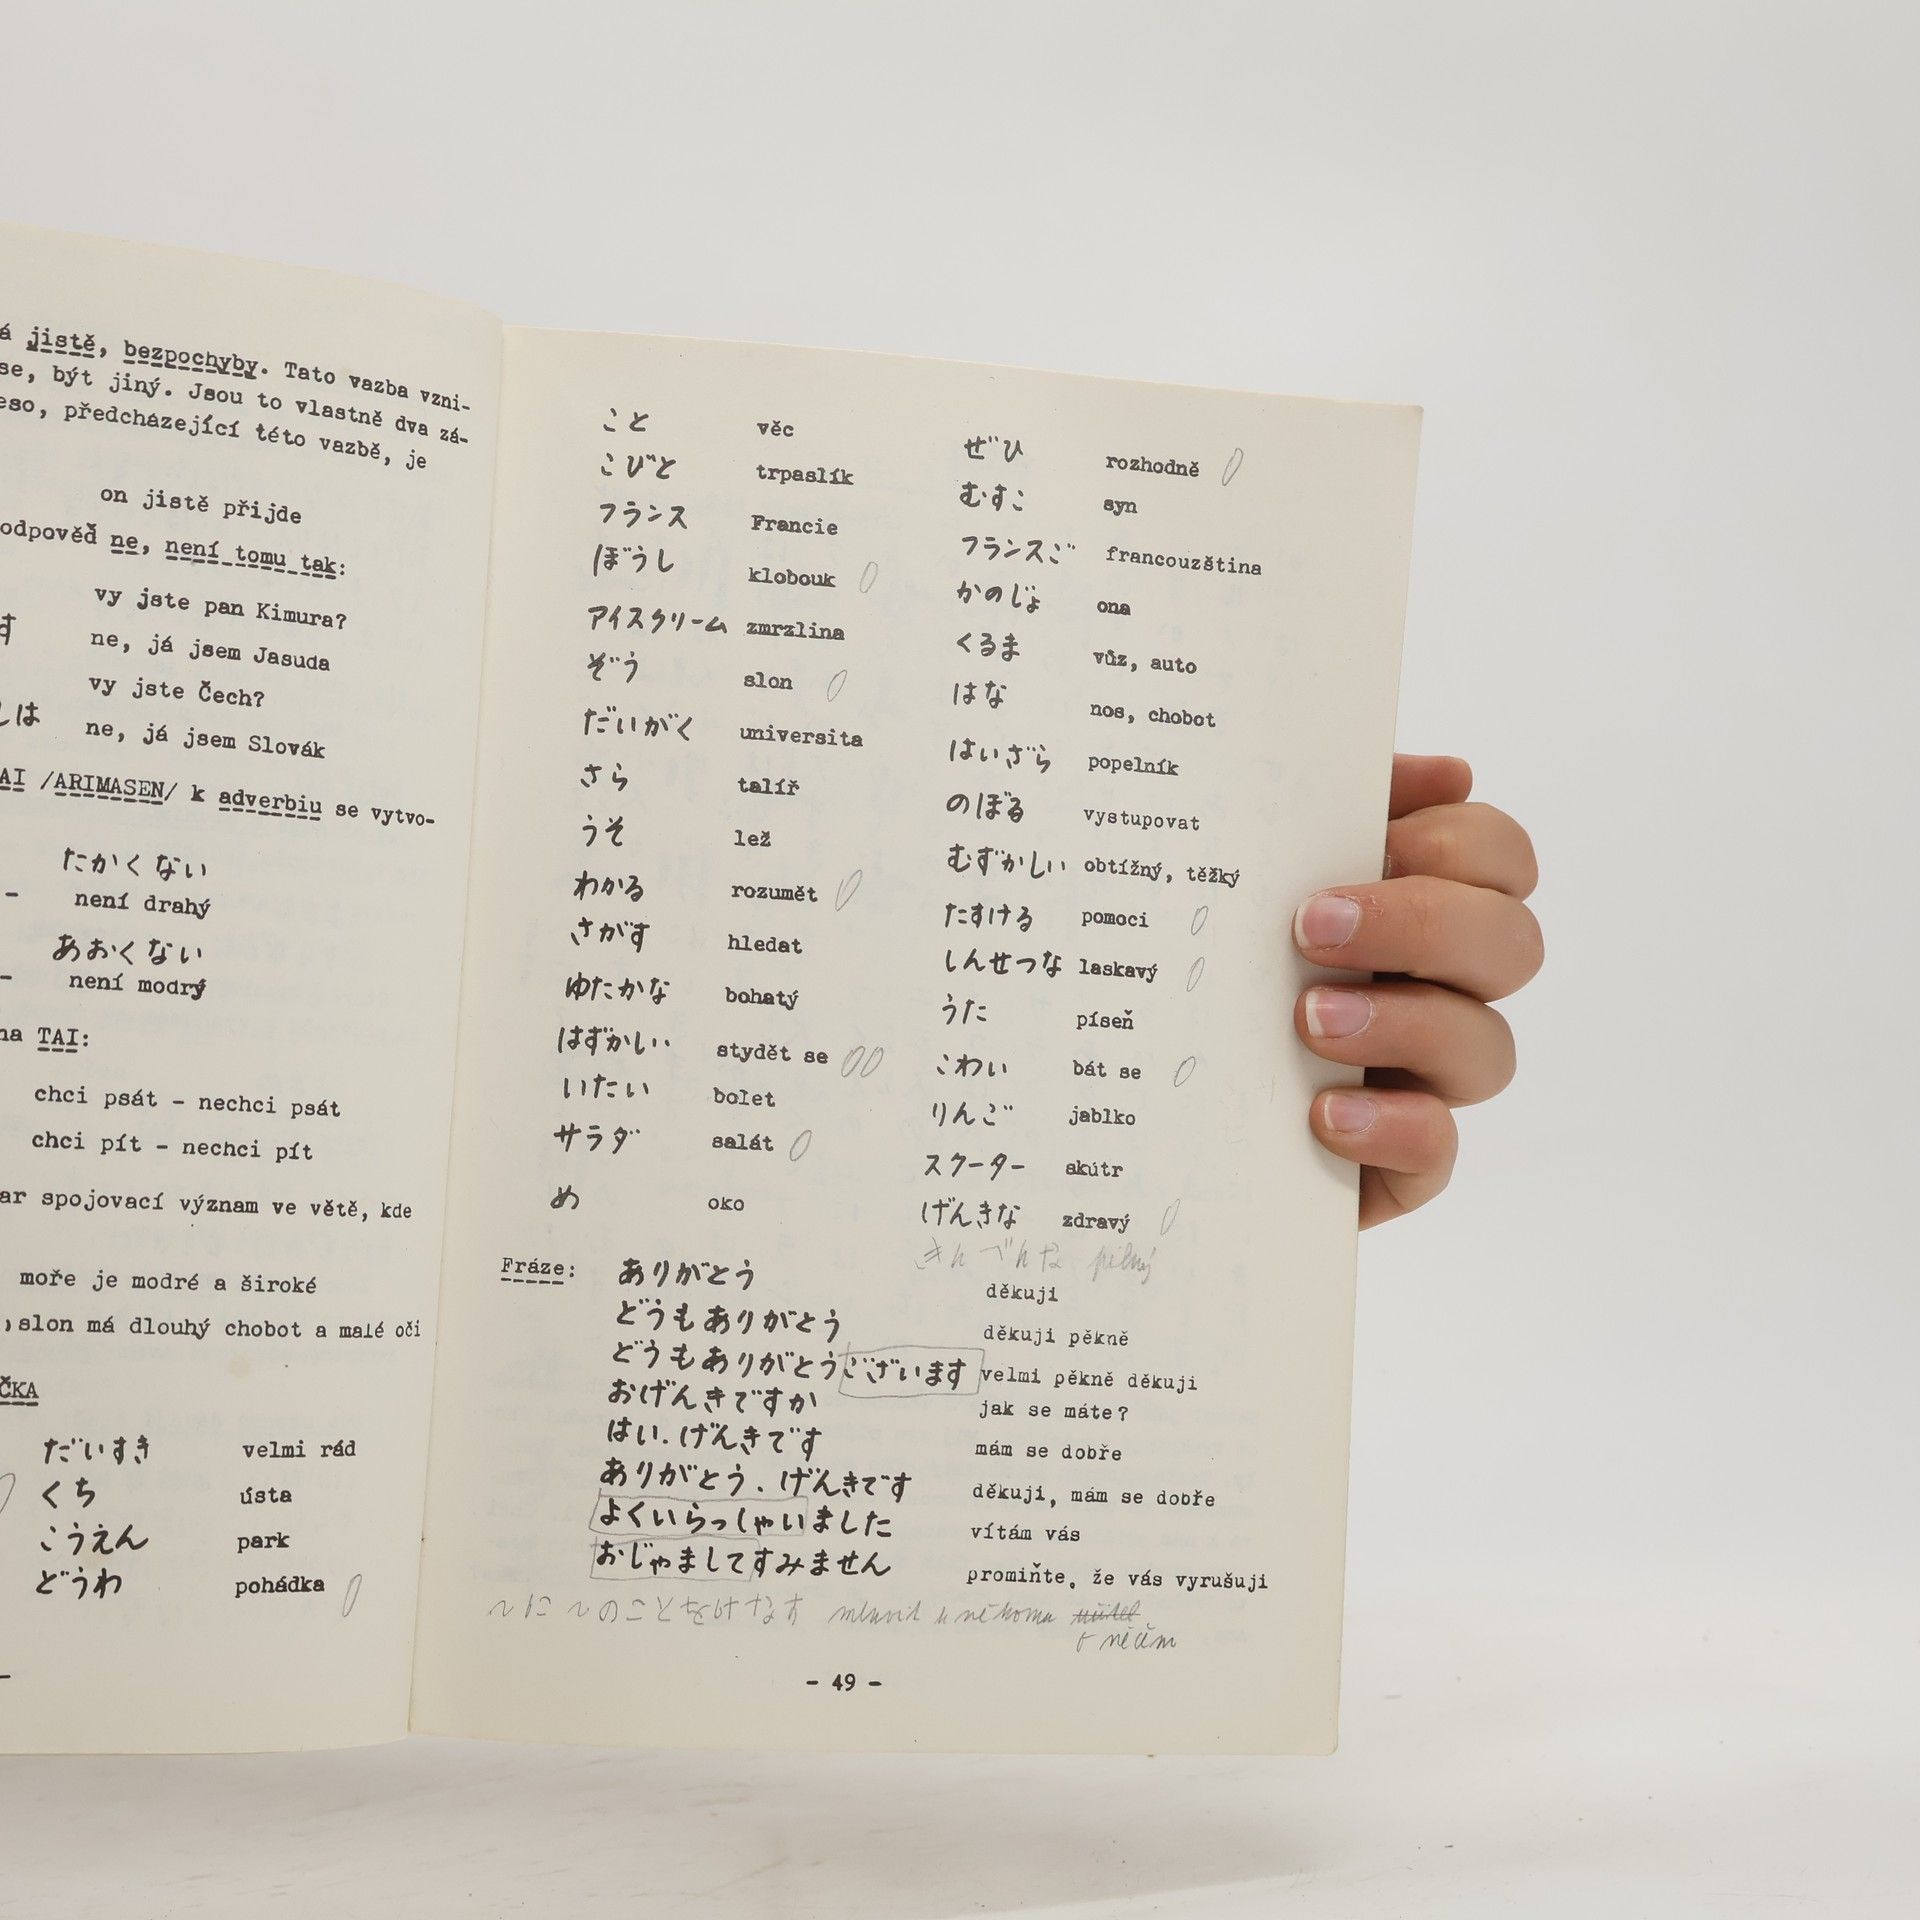 á jistě, bezpochyby. Tato vazba vzni-
se, být jiný. Jsou to vlastně dva zá-
eso, předcházející této vazbě, je
on jistě přijde
odpověď ne, není tomu tak:
vy jste pan Kimura?
す ne, já jsem Jasuda
vy jste Čech?
しは ne, já jsem Slovák
AI /ARIMASEN/ k adverbiu se vytvo-
たかくない
- není drahý
あおくない
- není modrý
na TAI:
chci psát - nechci psát
chci pít - nechci pít
ar spojovací význam ve větě, kde
moře je modré a široké
, slon má dlouhý chobot a malé oči
ČKA
だいすき velmi rád
くち ústa
こうえん park
どうわ pohádka
-
こと věc
こびと trpaslík
フランス Francie
ぼうし klobouk
アイスクリーム zmrzlina
ぞう slon
だいがく universita
さら talíř
うそ lež
わかる rozumět
さがす hledat
ゆたかな bohatý
はずかしい stydět se
いたい bolet
サラダ salát
め oko
ぜひ rozhodně
むすこ syn
フランスご francouzština
かのじょ ona
くるま vůz, auto
はな nos, chobot
はいざら popelník
のぼる vystupovat
むずかしい obtížný, těžký
たすける pomoci
しんせつな laskavý
うた píseň
こわい bát se
りんご jablko
スクーター skútr
げんきな zdravý
きんべんな pilný
Fráze: ありがとう děkuji
どうもありがとう děkuji pěkně
どうもありがとうございます velmi pěkně děkuji
おげんきですか jak se máte?
はい.げんきです mám se dobře
ありがとう.げんきです děkuji, mám se dobře
よくいらっしゃいました vítám vás
おじゃましてすみません promiňte, že vás vyrušuji
~に ~のことをはなす mluvit k někomu
o něčem
- 49 -